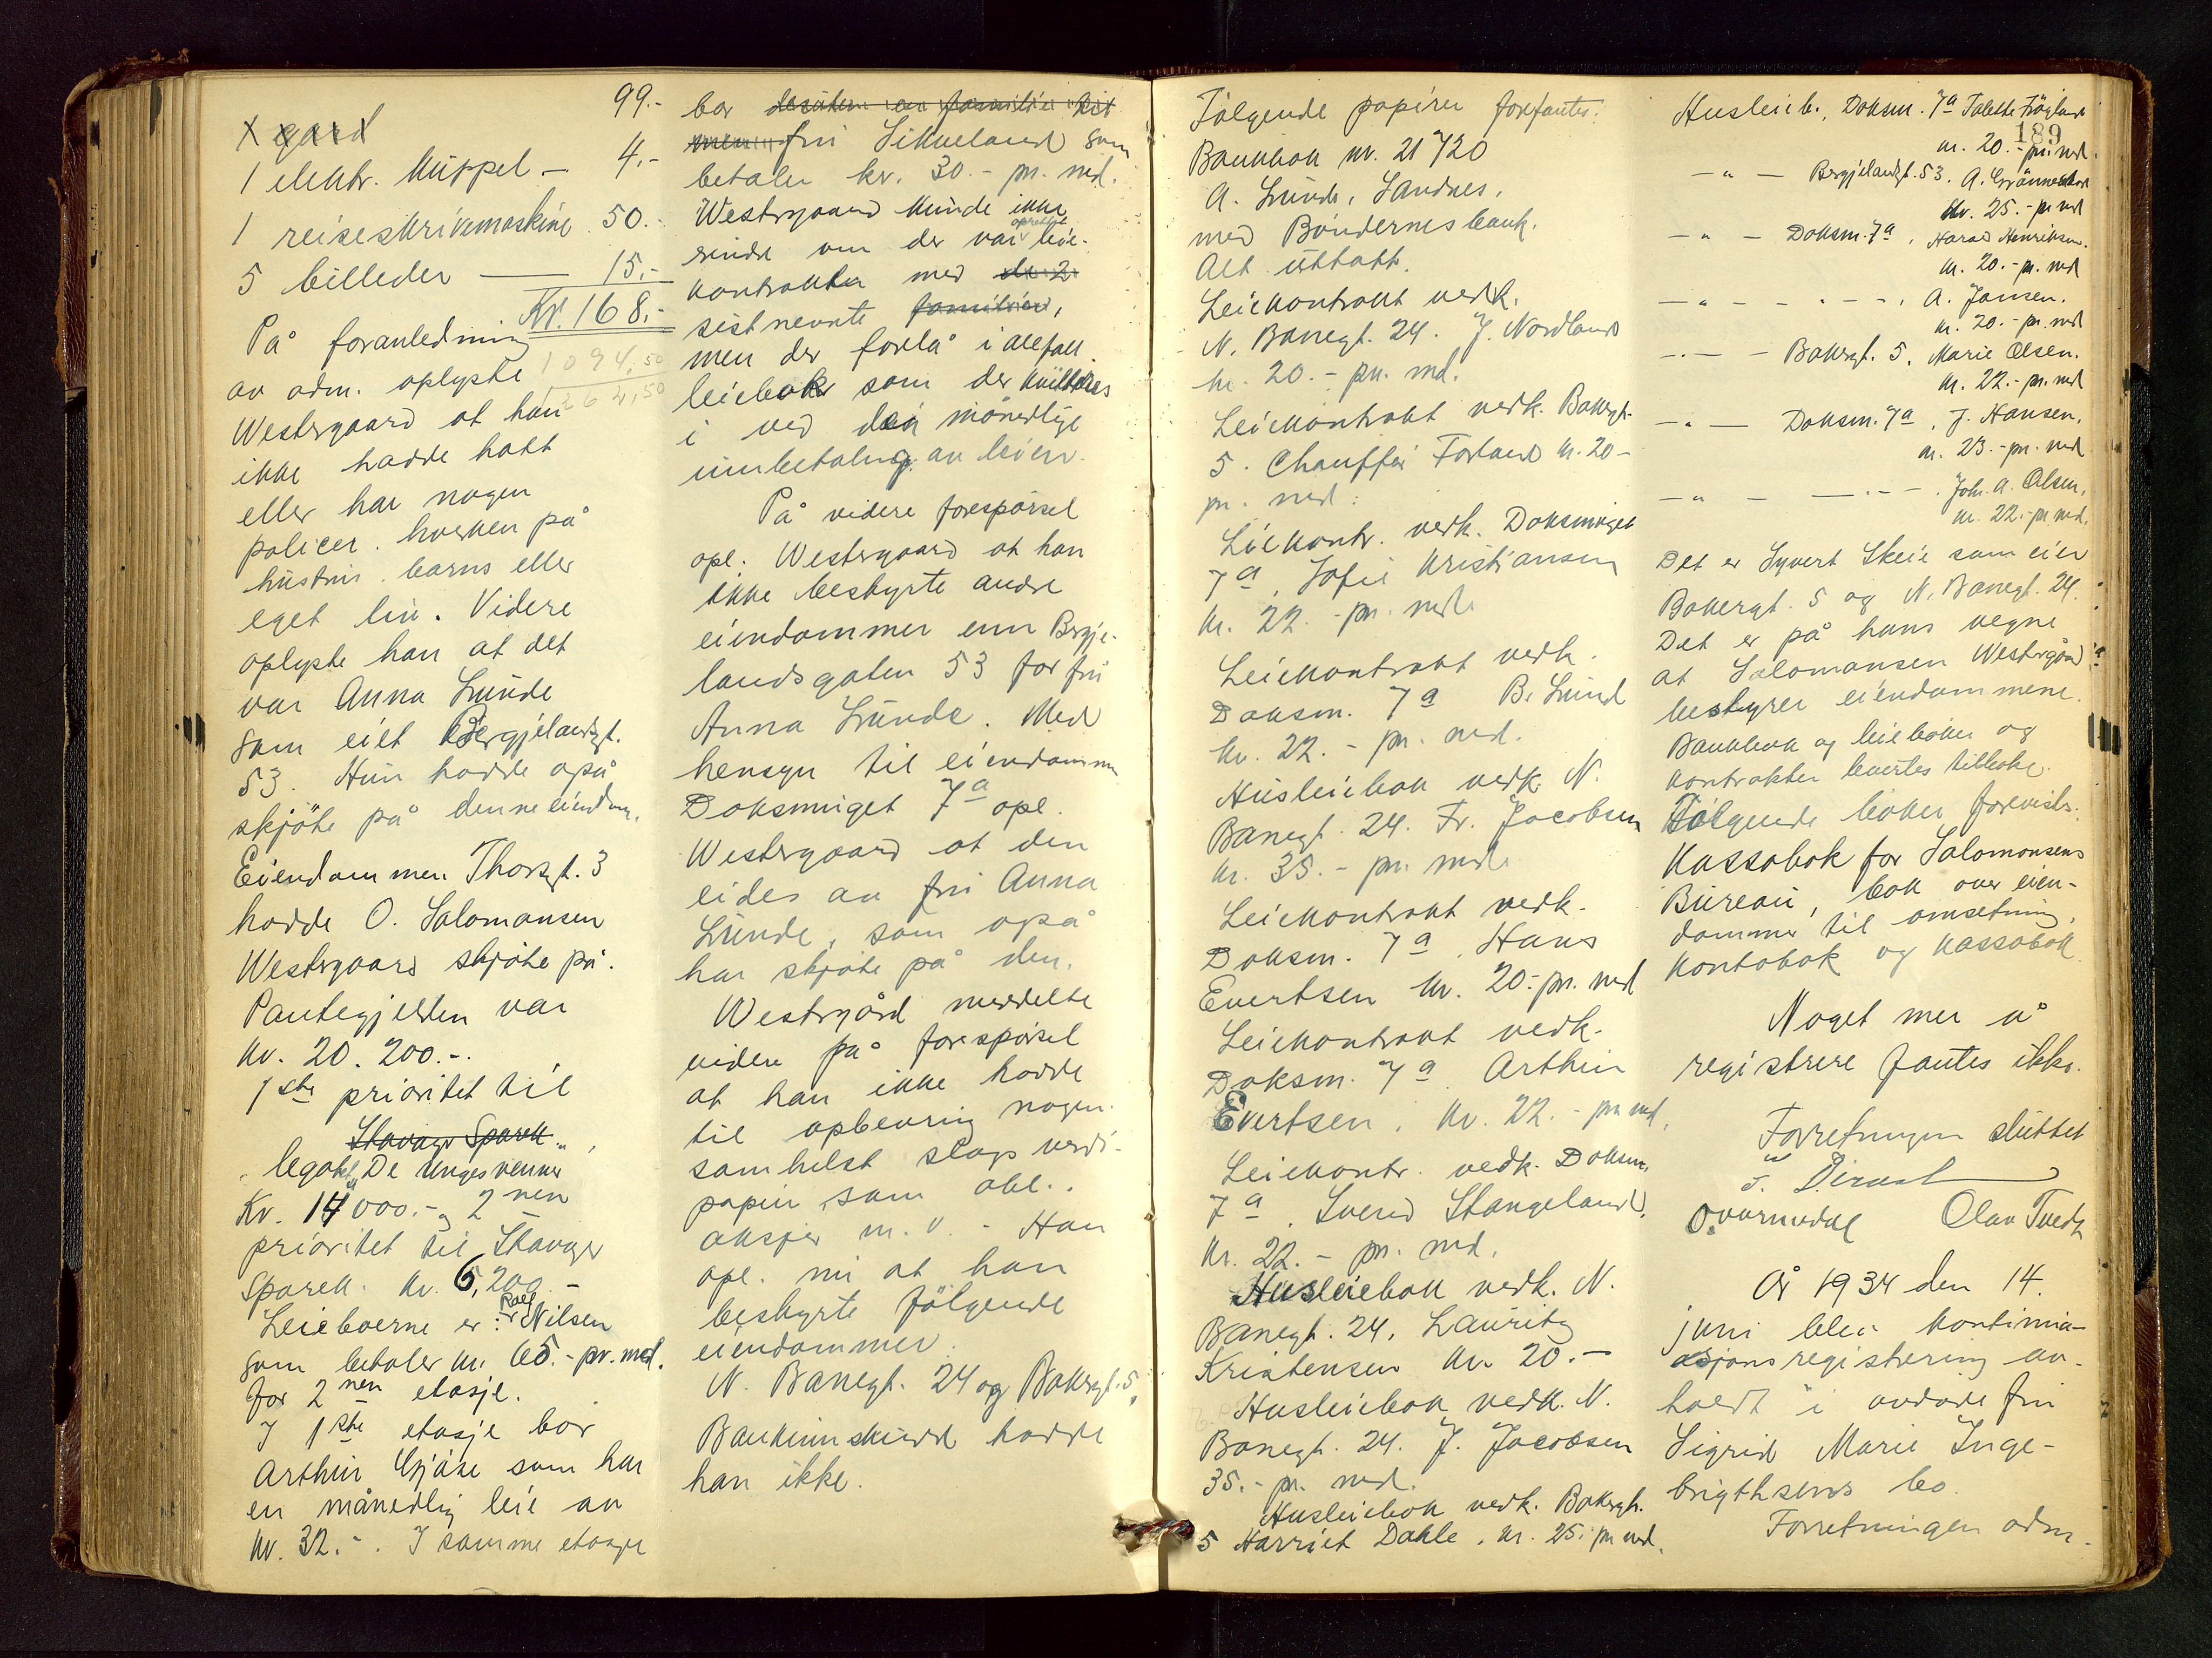 99.-
x gard
1 elektr. kuppel - 4,-
1 reiseskrivemaskine 50.-
5 billeder - 15.-
Kr. 168.-
På foranledning 1094,50
av adm. oplyste 1262,50
Westergaard at han
ikke hadde hatt
eller har nogen
policer. hverken på
hustrus. barns eller
eget liv. Videre
oplyste han at det
var Anna Lunde
som eiet Bergjelandsgt.
53. Hun hadde også
skjöte på denne eiendom.
Eiendommen Thorsgt. 3
hadde O. Salomonsen
Westergaard skjöte på.
Pantegjelden var
kr. 20.200.-.
1ste prioritet til
Stavanger Sparek.
legatet "De Unges venner"
Kr. 14000.- og 2nen
prioritet til Stavanger
Sparek. kr. 6,200.-
Leieboerne er: Rolf Nilsen
som betaler kr. 65.- pr. md.
for 2nen etasje.
I 1ste etasje bor
Arthur Gjöse som har
en månedlig leie av
kr. 32.-. I samme etasje
bor desuten en familie dit
men fru Sikveland som
betaler kr. 30.- pr. md.
Westergaard kunde ikke
erindre om der var oprettet leie-
kontrakter med de 2
sistnevnte familier,
men der forelå i allefall
leiebøker som der kvitteres
i ved den månedlige
innbetaling av leien.
På videre forespörsel
opl. Westergaard at han
ikke bestyrte andre
eiendommer enn Bergje-
landsgaten 53 for fru
Anna Lunde. Med
hensyn til eiendommen
Doksmuget 7a opl.
Westergaard at den
eides av fru Anna
Lunde, som også
har skjöte på den.
Westergård meddelte
videre på forespörsel
at han ikke hadde
til opbevaring nogen-
somhelst slags verdi-
papir som obl.,
aksjer m.v. - Han
opl. nu at han
bestyrte fölgende
eiendommer.
N. Banegt. 24 og Bakergt. 5.
Bankinnskudd hadde
han ikke.
Fölgende papirer forefantes:
Bankbok nr. 21720
A. Lunde, Sandnes,
med Bøndernes bank.
Alt uttatt.
Leiekontrakt vedk.
N. Banegt. 24. J. Nordland
kr. 20.- pr. md.
Leiekontrakt vedk. Bakergt.
5. Chauffør Forland kr. 20-
pr. md.
Leiekontr. vedk. Doksmuget
7a, Sofie Kristiansen
kr. 22.- pr. md.
Leiekontrakt vedk.
Doksm. 7a B. Lund
kr. 22.- pr. md.
Husleiebok vedk. N.
Banegt. 24. Fr. Jacobsen
kr. 35.- pr. md.
Leiekontrakt vedk.
Doksm. 7a, Hans
Evertsen kr. 20.- pr. md
Leiekontrakt vedk.
Doksm. 7a Arthur
Evertsen, kr. 22.- pr. md.
Leiekontr. vedk. Doksm.
7a, Svend Stangeland,
kr. 22.- pr. md.
Husleiebok vedk. N.
Banegt. 24, Lauritz
Kristensen kr. 20.-
Husleiebok vedk. N.
Banegt. 24. J. Jacobsen
35.- pr. md.
Husleiebok vedk. Bakergt.
5 Harriet Dahle, kr. 25.- pr. md.
189
Husleieb. Doksm. 7a Talette Frøyland
kr. 20.- pr. md.
- " - Bergjelandsgt. 53. A. Grönnestad
kr. 25.- pr. md
- " - Doksm. 7a, Harald Henriksen.
kr. 20.- pr. md
- " - - . - -, A. Jansen.
kr. 20.- pr. md
- " - - Bakergt. 5, Marie Olsen.
kr. 22.- pr. md
- " - Doksm. 7a, J. Hansen,
kr. 23.- pr. md
- " - - . - - . Joh. A. Olsen,
kr. 22.- pr. md.
Det er Syvert Skeie som eier
Bakergt. 5 og N. Banegt. 24.
Det er på hans vegne
at Salomonsen Westergård
bestyrer eiendommene.
Bankbok og leiebøker og
kontrakter levertes tilbake.
Fölgende böker forevistes:
Kassabok for Salomonsens
Bureau, bok over eien-
dommer til omsetning,
kontobok og kassabok
Noget mer å
registrere fantes ikke.
Forretningen sluttet
Olav Tvedt
År 1934 den 14.
juni blev kontinua-
sjonsregistrering av-
holdt i avdøde fru
Sigrid Marie Inge-
brigthsens bo.
Forretningen adm.